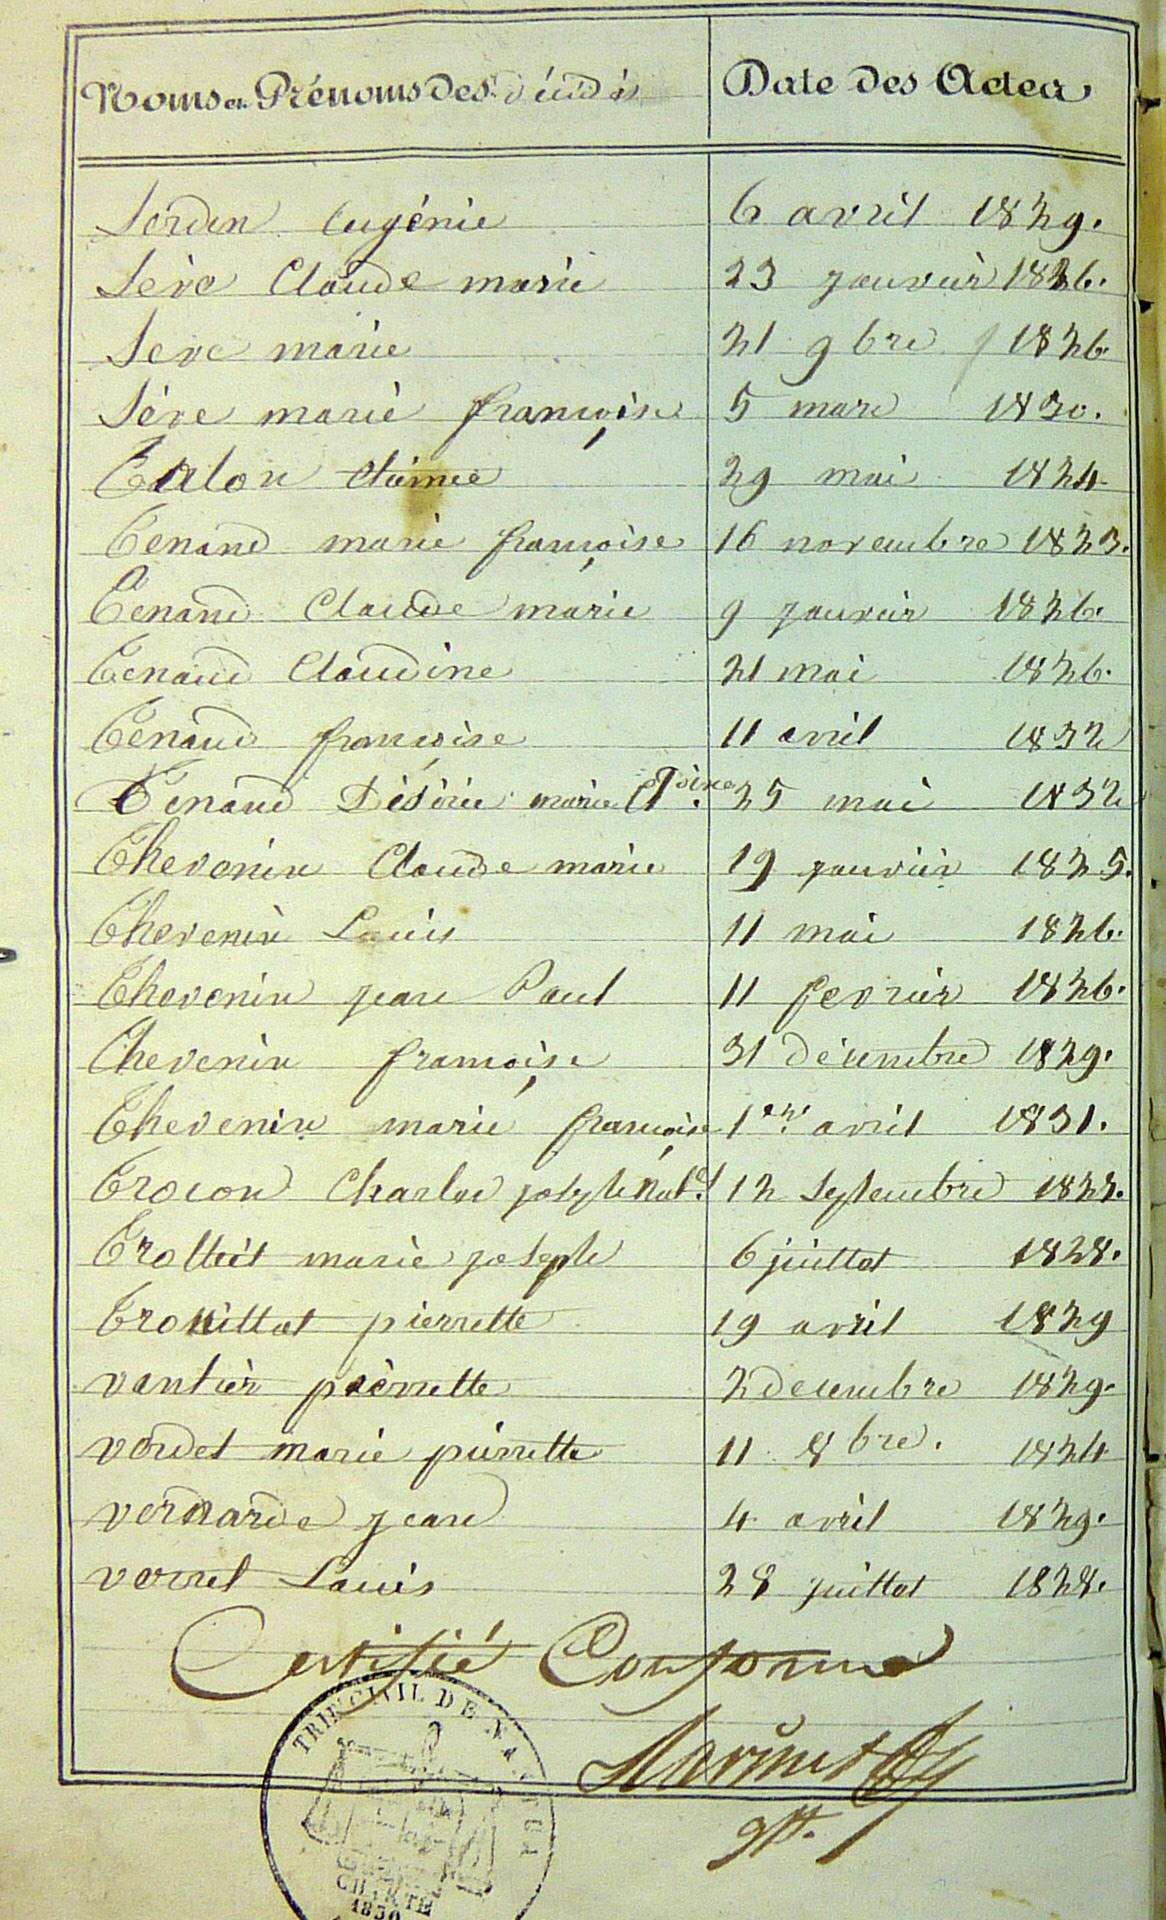 Noms et Prénoms des décédés Date des Actes
Serden Eugénie 6 avril 1829.
Sève Claude marie 23 janvier 1826.
Seve marie 21 9bre 1826.
Sève marie françoise 5 mars 1830.
Talon 29 mai 1824
Tenand marie françoise 16 novembre 1823.
Tenand Claude marie 9 janvier 1826.
Tenand Claudine 21 mai 1826.
Tenand françoise 11 avril 1832
Tenand Désirée marie 25 mai 1832
Thevenin Claude marie 19 janvier 1825.
Thevenin Louis 11 mai 1826.
Thevenin jean Paul 11 fevrier 1826.
Thevenin françoise 31 décembre 1829.
Thevenin marie françoise 1er avril 1831.
Trocon Charles joseph 12 Septembre
marie joseph 6 juillet 1828.
Trouillet pierrette 19 avril 1829
vantier pierrette 2 decembre 1829.
verdet marie pierrette 11 8bre. 1824
jean 4 avril 1829.
vernet Louis 28 juillet 1828.
Certifié Conforme
TRIB. CIVIL DE
CHARTE
1830